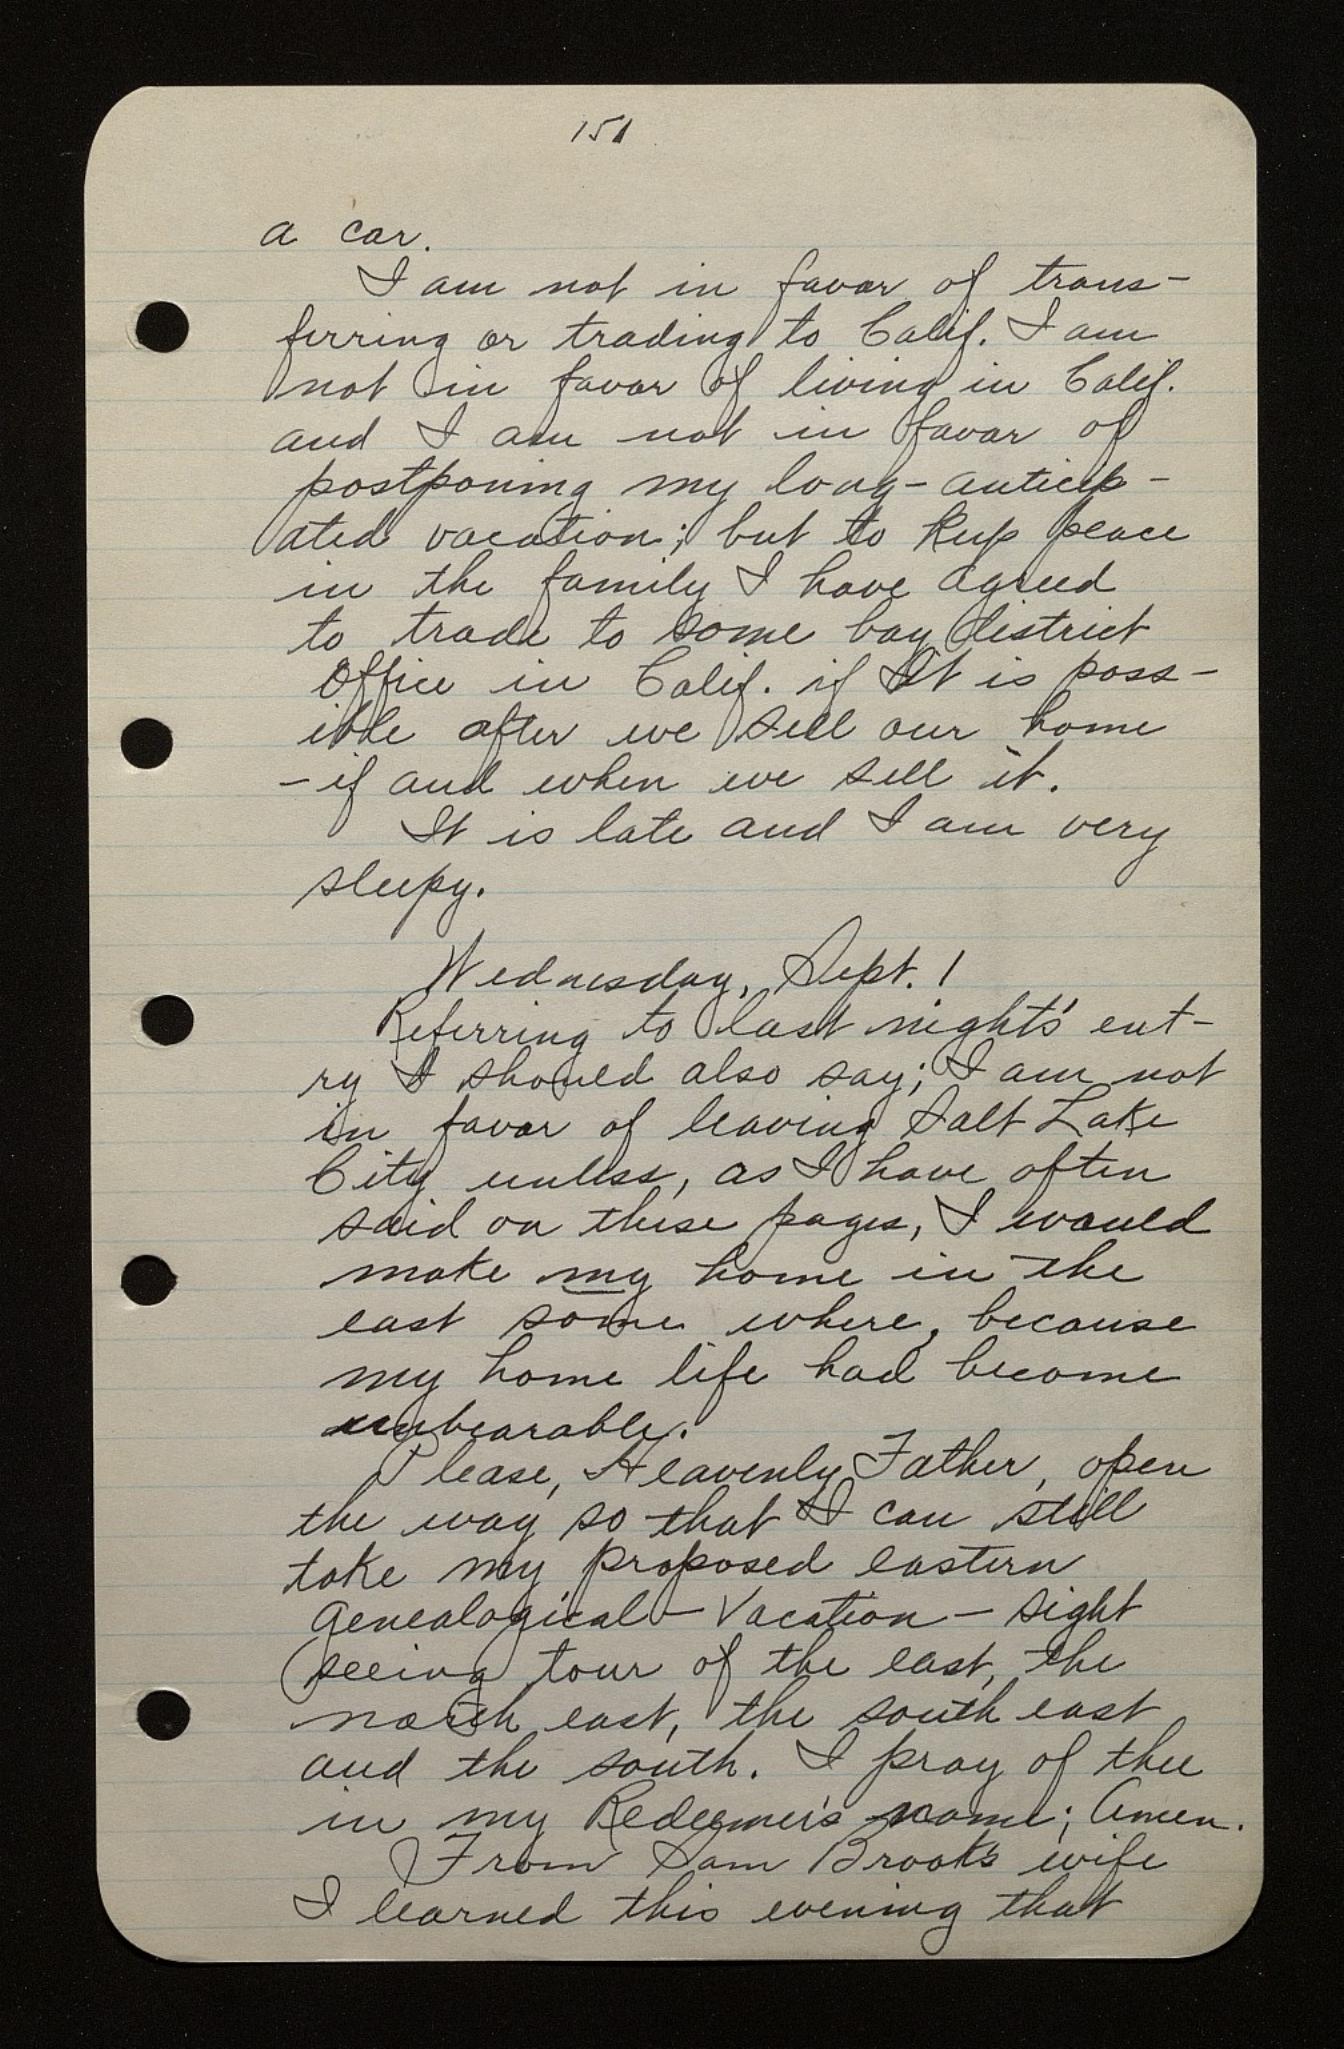 151
a car.
I am not in favor of trans-
ferring or trading to Calif. I am
not in favor of living in Calif.
and I am not in favor of
postponing my long-anticip-
ated vacation; but to keep peace
in the family I have agreed
to trade to some bay district
office in Calif. if it is poss-
ible after we sell our home
-if and when we sell it.
It is late and I am very
sleepy.
Wednesday, Sept. 1
Referring to last night's ent-
ry I should also say; I am not
in favor of leaving Salt Lake
City unless, as I have often
said on these pages, I would
make my home in the
east some where, because
my home life had become
unbearable.
Please, Heavenly Father, open
the way so that I can still
take my proposed eastern
Genealogical-Vacation-sight
seeing tour of the east, the
north east, the south east
and the south. I pray of thee
in my Redeemer's name; Amen.
From Sam Brook's wife
I learned this evening that